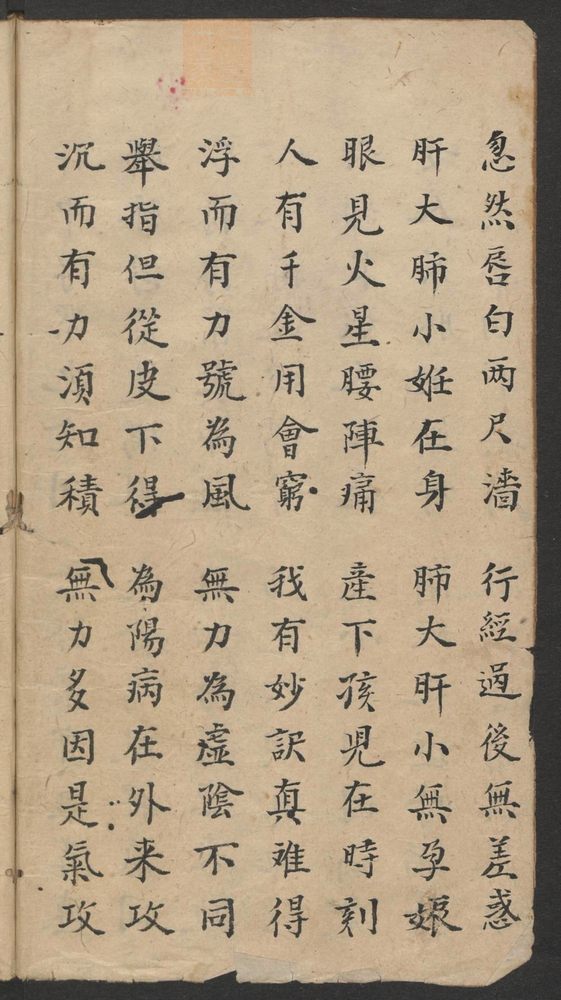 忽然唇白两尺濇 行經過後無差惑
肝大肺小妊在身 肺大肝小無孕娠
眼見火星腰陣痛 産下孩兒在時刻
人有千金用會窮 我有妙訣真难得
浮而有力號為風 無力為虚陰不同
舉指但從皮下得 為陽病在外来攻
沉而有力須知積 無力多因是氣攻